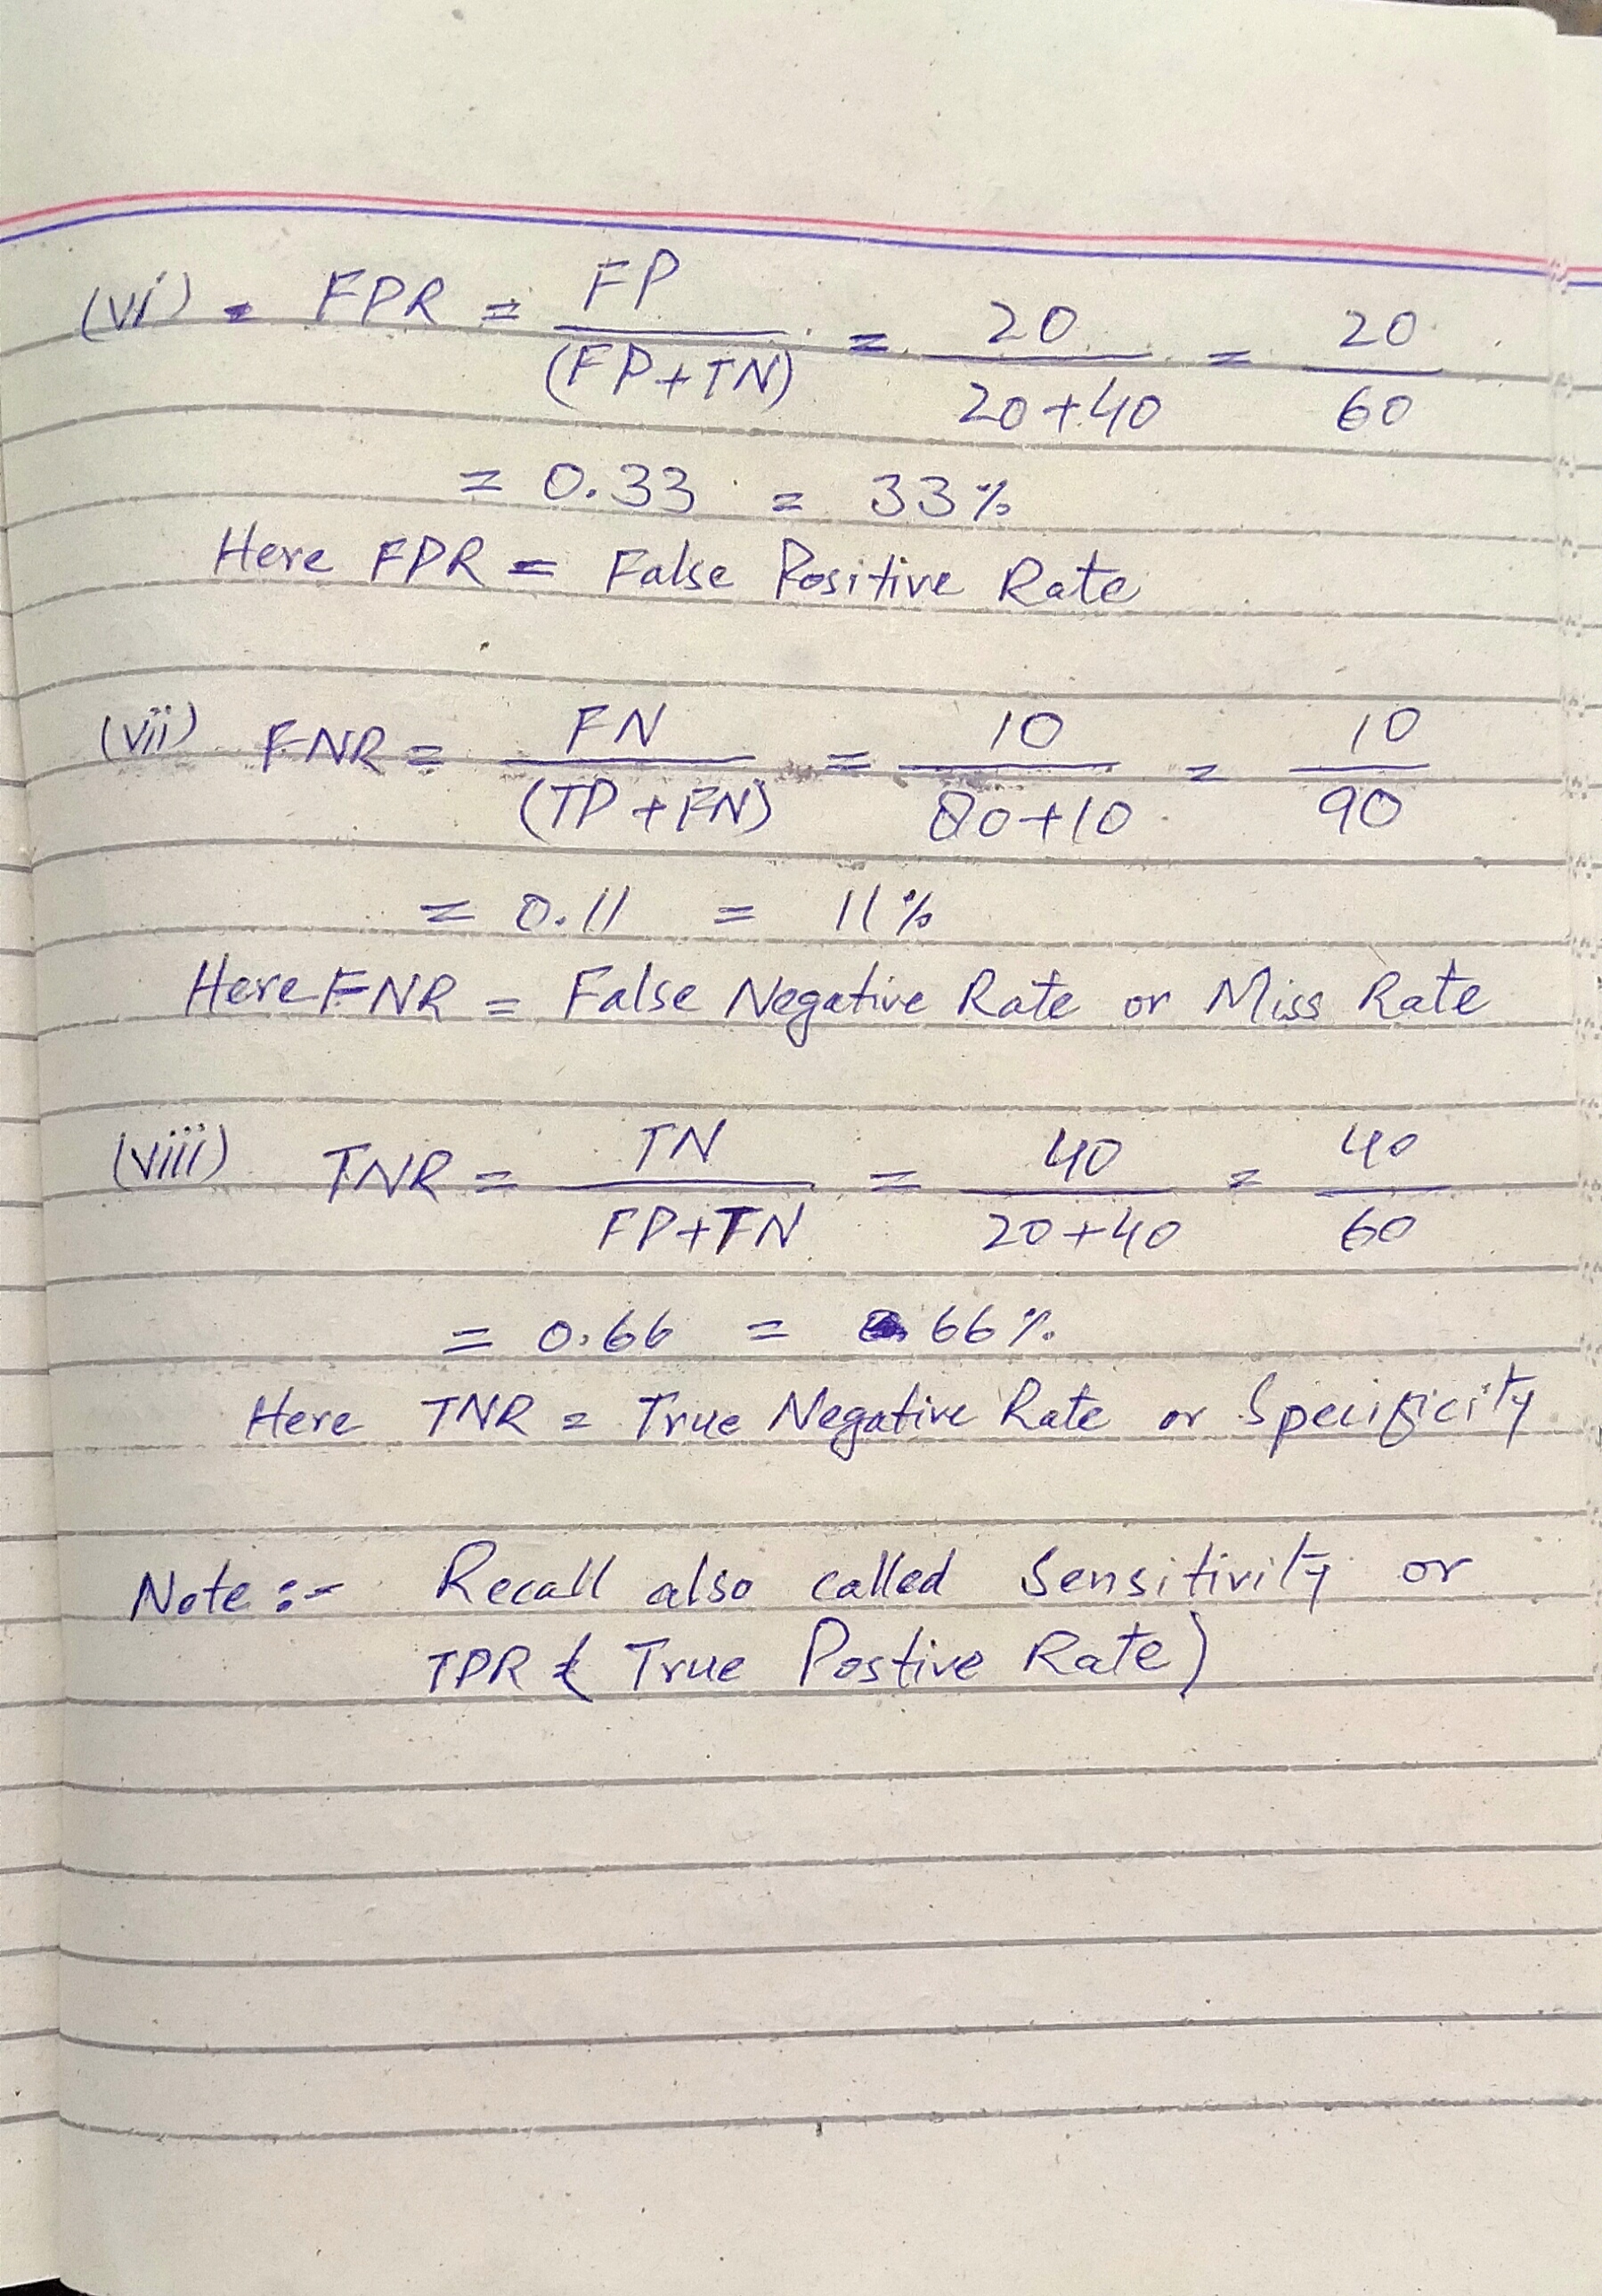 (vi) - FPR = FP / (FP+TN) = 20 / 20+40 = 20 / 60
= 0.33 = 33%
Here FPR = False Positive Rate
(vii) FNR = FN / (TP+FN) = 10 / 80+10 = 10 / 90
= 0.11 = 11%
Here FNR = False Negative Rate or Miss Rate
(viii) TNR = TN / FP+TN = 40 / 20+40 = 40 / 60
= 0.66 = 66%
Here TNR = True Negative Rate or Specificity
Note :- Recall also called Sensitivity or
TPR ( True Postive Rate)